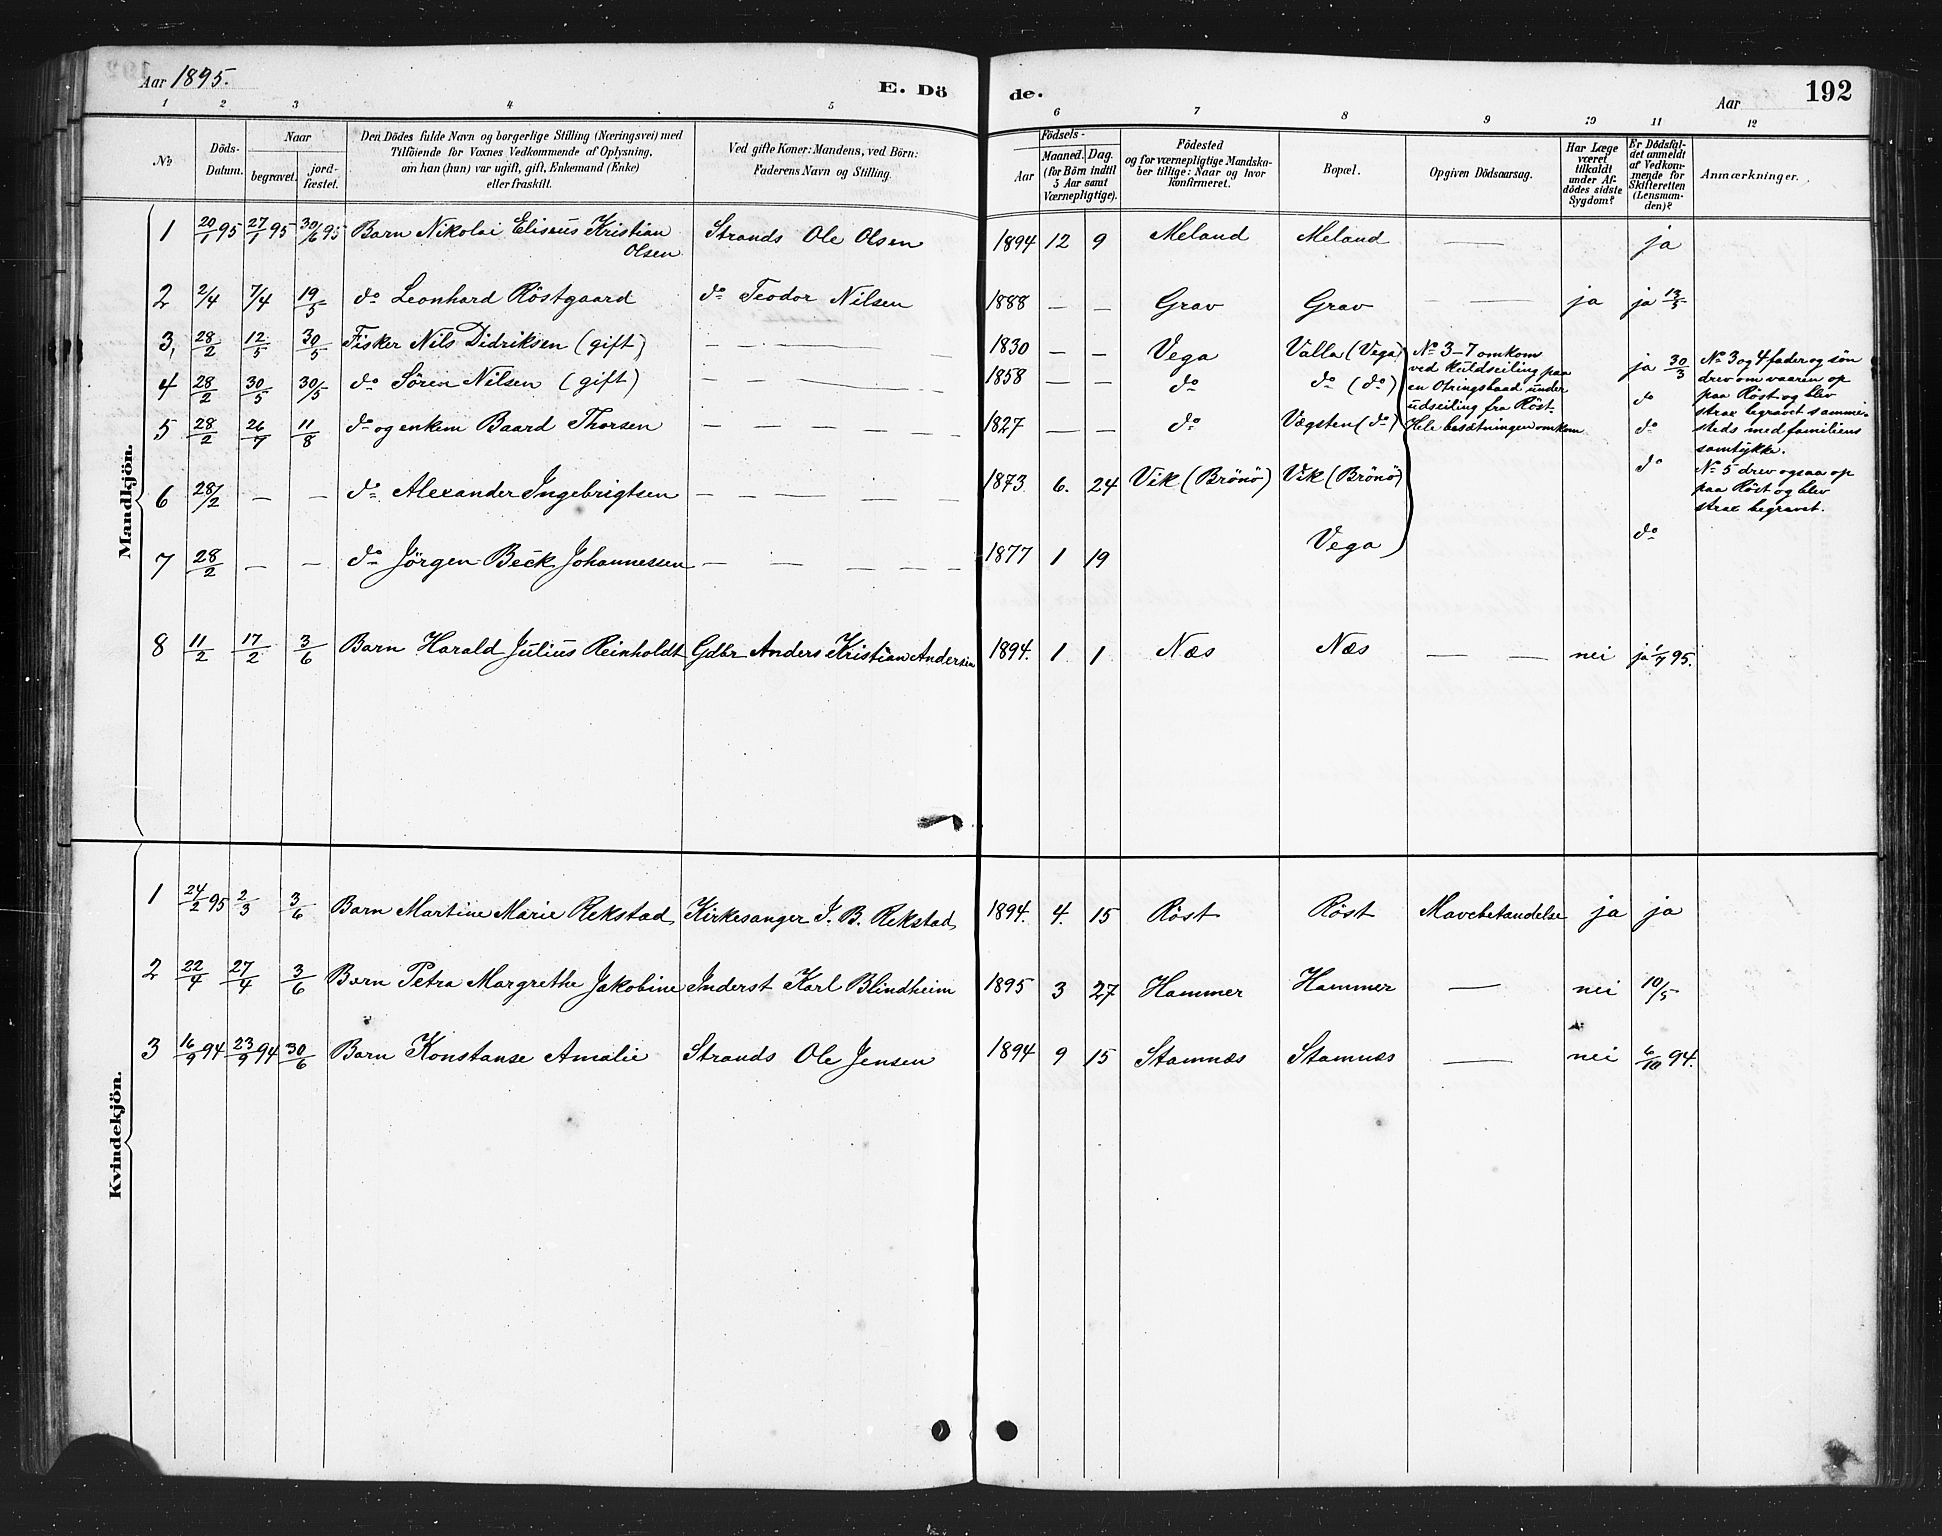 Aar 1895.
E. Dö
de.
Aar
192
1 2 3 4 5 6 7 8 9 10 11 12
No
Döds-Datum.
Naar
begravet.
jord-fæstet.
Den Dödes fulde Navn og borgerlige Stilling (Næringsvei) med
Tilföiende for Voxnes Vedkommende af Oplysning,
om han (hun) var ugift, gift, Enkemand (Enke)
eller fraskilt.
Ved gifte Koner: Mandens, ved Börn:
Faderens Navn og Stilling.
Födsels-
Aar
Maaned. Dag.
(for Börn indtil
5 Aar samt
Værnepligtige).
Födested
og for værnepligtige Mandska-
ber tillige: Naar og hvor
konfirmeret.
Bopæl.
Opgiven Dödsaarsag.
Har Læge
været
tilkaldt
under Af-
dödes sidste
Sygdom?
Er Dödsfal-
det anmeldt
af Vedkom-
mende for
Skifteretten
(Lensman-
den)?
Anmærkninger.
Mandkjön.
1 20/1 95 27/1 95 30/6 95 Barn Nikolai Eliseus Kristian Olsen Strands Ole Olsen 1894 12 9 Meland Meland — ja
2 2/4 7/4 19/5 do Leonhard Röstgaard do Teodor Nilsen 1888 — — Grav Grav — ja ja 13/5
3, 28/2 12/5 30/5 Fisker Nils Didriksen (gift) — — — — 1830 — — Vega Valla (Vega) ja 30/3
4 28/2 30/5 30/5 do Sören Nilsen (gift) — — — — 1858 — — do do (do) do
5 28/2 26/7 11/8 do og enkem Baard Thorsen — — — — — — 1827 — — do Vægsten (do) do
6 28/2 — — do Alexander Ingebrigtsen — — — — — — 1873 6. 24 Vik (Brönö) Vik (Brönö) do
7 28/2 — — do Jörgen Beck Johannessen — — — — — 1877 1 19 Vega do
No 3–7 omkom
ved Kuldseiling paa
en Otringsbaad under
udseiling fra Röst.
Hele besætningen omkom
No 3 og 4 fader og sön
drev om vaaren op
paa Röst og blev
strax begravet sammen-
steds med familiens
samtykke.
No 5 drev ogsaa op
paa Röst og blev
strax begravet.
8 11/2 17/2 3/6 Barn Harald Julius Reinholdt Gdbr Anders Kristian Andersen 1894. 1 1 Næs Næs — — nei ja 1/7 95.
Kvindekjön.
1 24/2 95 2/3 3/6 Barn Martine Marie Rekstad Kirkesanger J. B. Rekstad 1894. 4. 15 Röst Röst Mavebetændelse ja ja
2 22/4 27/4 3/6 Barn Petra Margrethe Jakobine Inderst Karl Blindheim 1895 3 27 Hammer Hammer — nei 10/5
3 16/9 94 23/9 94 30/6 Barn Konstanse Amalie Strands Ole Jensen 1894 9 15 Stamnæs Stamnæs — nei 6/10 94.